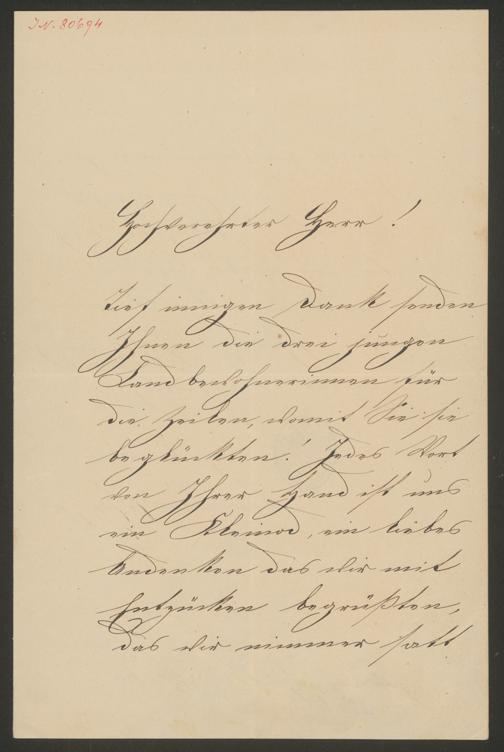 JN. 80694
Hochverehrter Herr!
tief innigen Dank senden
Ihnen die drei jungen
Landbewohnerinnen für
die Zeilen, womit Sie sie
beglückten! Jedes Wort
von Ihrer Hand ist uns
ein Kleinod, ein liebes
Andenken das wir mit
Entzücken begrüßten,
das wir nimmer satt